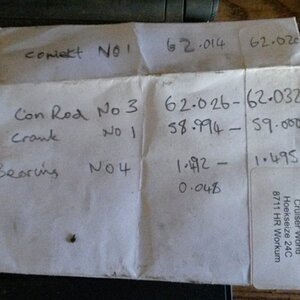 conrekt NO 1 62.014 62.020
Con Rod No 3 62.026 - 62.032
Crank NO 1 58.994 - 59.000
Bearing NO 4 1.492 - 1.495
0.048
Cruiser World
Hoekseize 24C
8711 HR Workum